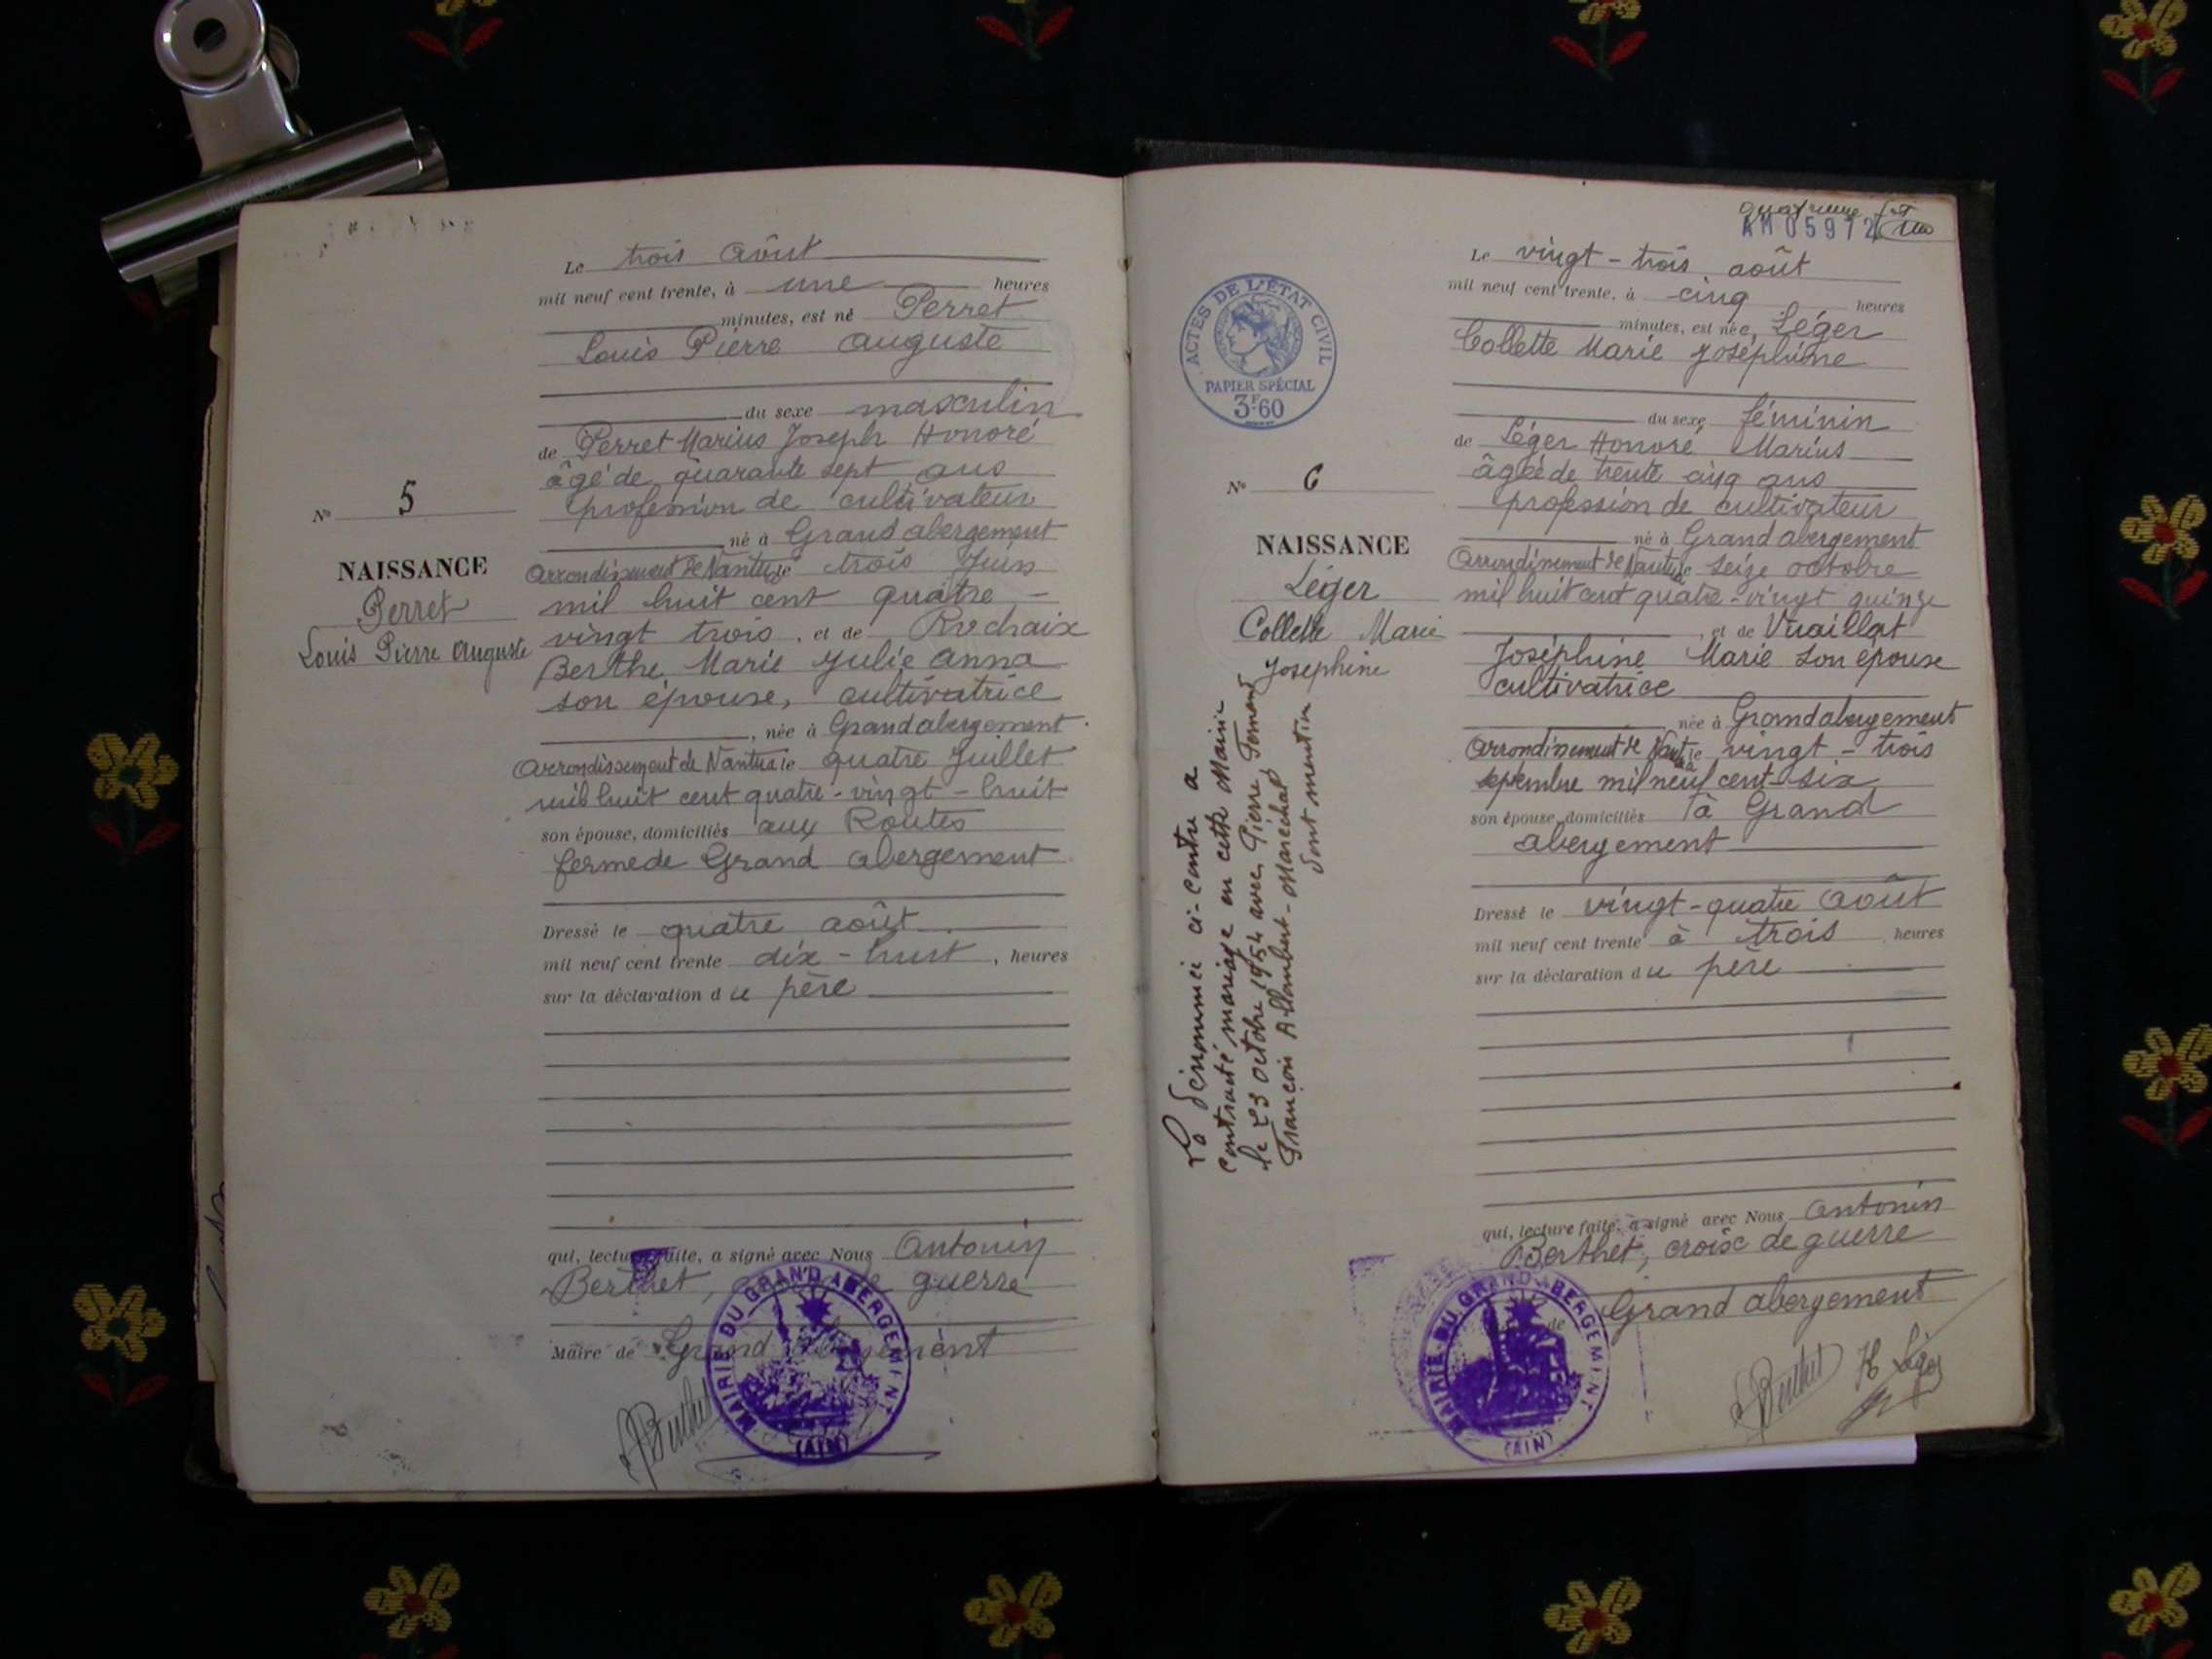 Le trois Août
mil neuf cent trente, à une heures
minutes, est né Perret
Louis Pierre Auguste
du sexe masculin
de Perret Marius Joseph Honoré
âgé de quarante sept ans
profession de cultivateur
né à Grand abergement
arrondissement de Nantua le trois Juin
mil huit cent quatre-
vingt trois, et de Rochaix
Berthe Marie Julie Anna
son épouse, cultivatrice
, née à Grand abergement
arrondissement de Nantua le quatre Juillet
mil huit cent quatre-vingt-huit
son épouse, domiciliés aux Routes
ferme de Grand abergement
Dressé le quatre août
mil neuf cent trente dix-huit, heures
sur la déclaration du père
qui, lecture faite, a signé avec Nous Antonin
Berthet, guerre
Maire de Grand abergement
Berthet
MAIRIE DU GRAND ABERGEMENT
(AIN)
N° 5
NAISSANCE
Perret
Louis Pierre Auguste
AM 05972
ACTES DE L'ÉTAT CIVIL
PAPIER SPÉCIAL
3F.60
N° 6
NAISSANCE
Léger
Collette Marie
Josephine
La dénommée ci-contre a
contracté mariage en cette Mairie
le 23 Octobre 1954 avec Pierre Fernand
François Allombert-Maréchal
dont mention
Le vingt-trois août
mil neuf cent trente, à cinq heures
minutes, est née, Léger
Collette Marie Joséphine
du sexe féminin
de Léger Honoré Marius
âgé de trente cinq ans
profession de cultivateur
né à Grand abergement
Arrondissement de Nantua le seize octobre
mil huit cent quatre-vingt quinze
, et de Vuaillat
Joséphine Marie son épouse
cultivatrice
née à Grand abergement
Arrondissement de Nantua le vingt-trois
septembre mil neuf cent-six
son épouse, domiciliés à Grand
abergement
Dressé le vingt-quatre août
mil neuf cent trente à trois heures
sur la déclaration du père
qui, lecture faite, a signé avec Nous Antonin
Berthet, croix de guerre
de Grand abergement
Berthet H Léger
MAIRIE DU GRAND ABERGEMENT
(AIN)